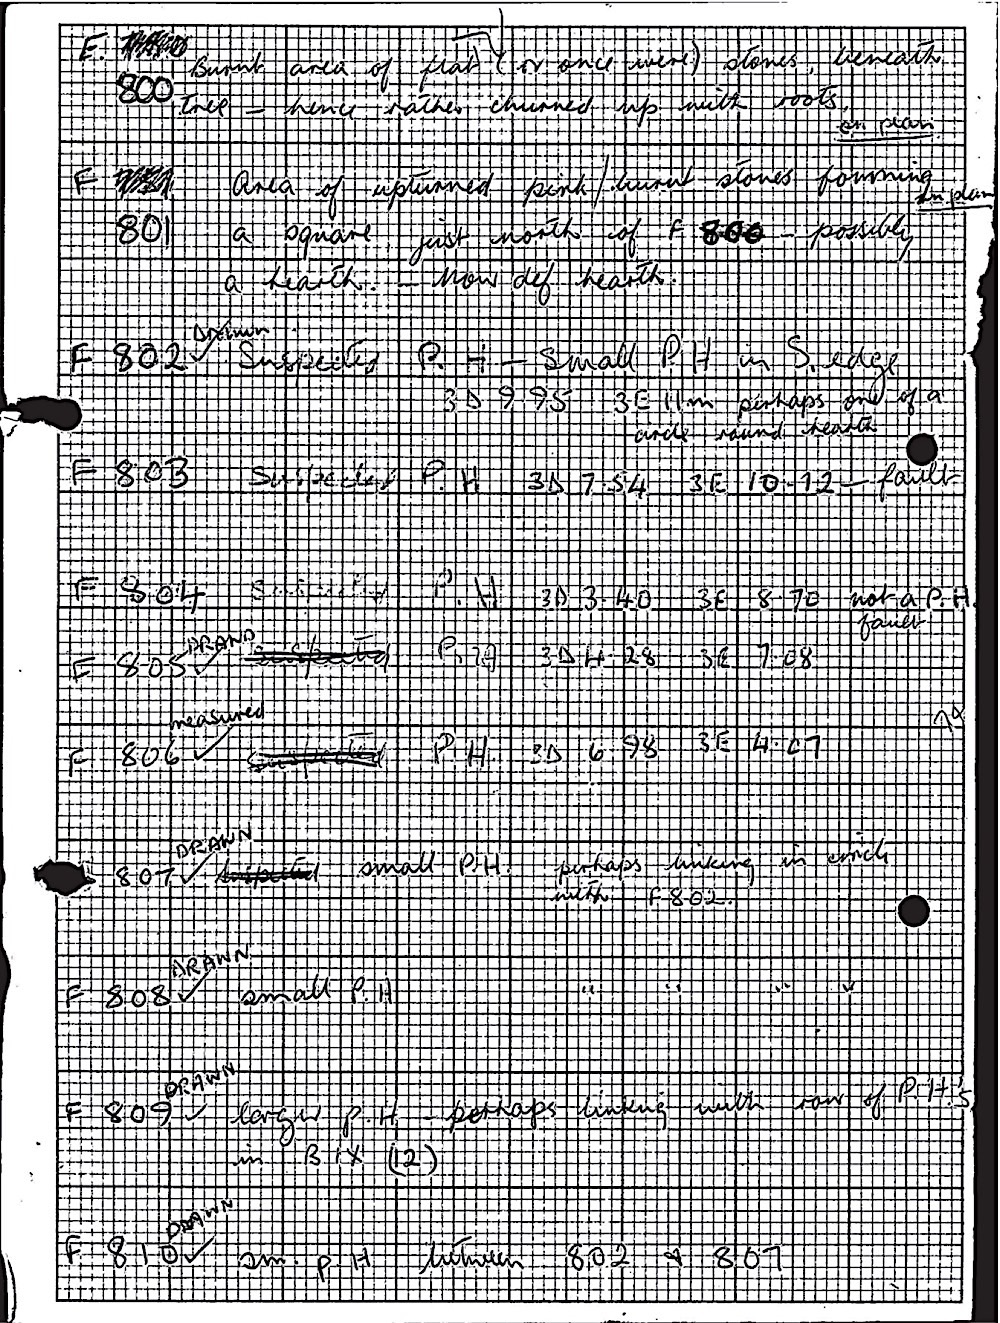 F. 800 Burnt area of flat (or once were) stones, beneath
tree – hence rather churned up with roots.
on plan
F 801 Area of upturned pink/burnt stones forming
on plan
a square just north of F 800 – possibly
a hearth. – Now def hearth.
F 802 ✓ Drawn Suspected P.H – Small P.H in S. edge
3D 9.95 3E 11m perhaps one of a
circle round hearth
F 803 Suspected P.H 3D 7.54 3E 10.72 – fault
F 804 Suspected P.H 3D 3.40 3E 8.70 not a P.H.
fault
F 805 ✓ DRAWN suspected P.H 3D 4.28 3E 7.08
F 806 ✓ measured suspected P.H. 3D 6.98 3E 4.07
807 ✓ DRAWN suspected small P.H. perhaps linking in circle
with F802.
F 808 ✓ DRAWN small P.H " " " "
F 809 ✓ DRAWN larger P.H – perhaps linking with row of P.H.'s
in B IX (12)
F 810 ✓ DRAWN sm. P.H between 802 & 807